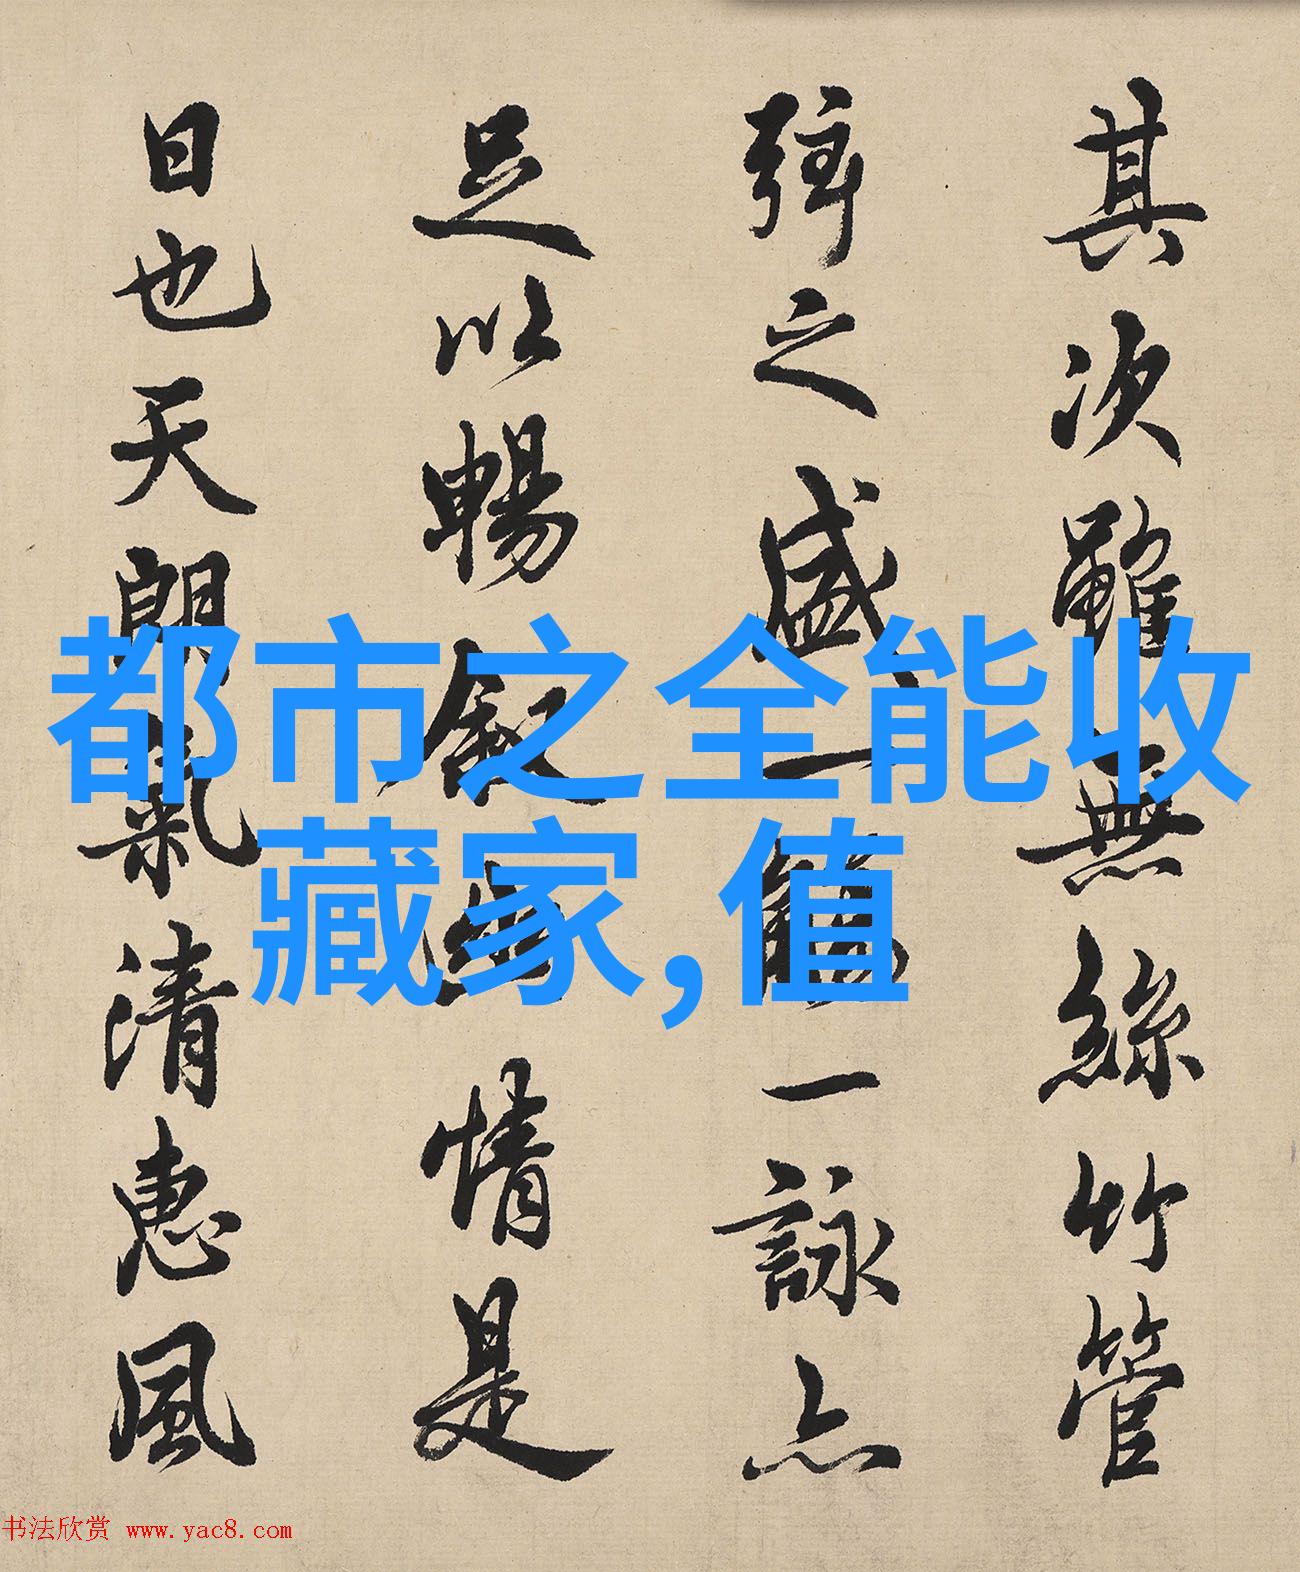 其次雖無絲竹管
弦之盛一觴一詠亦
足以暢敘幽情是
日也天朗氣清惠風
都市之全能收
藏家,值
书法欣赏 www.yac8.com